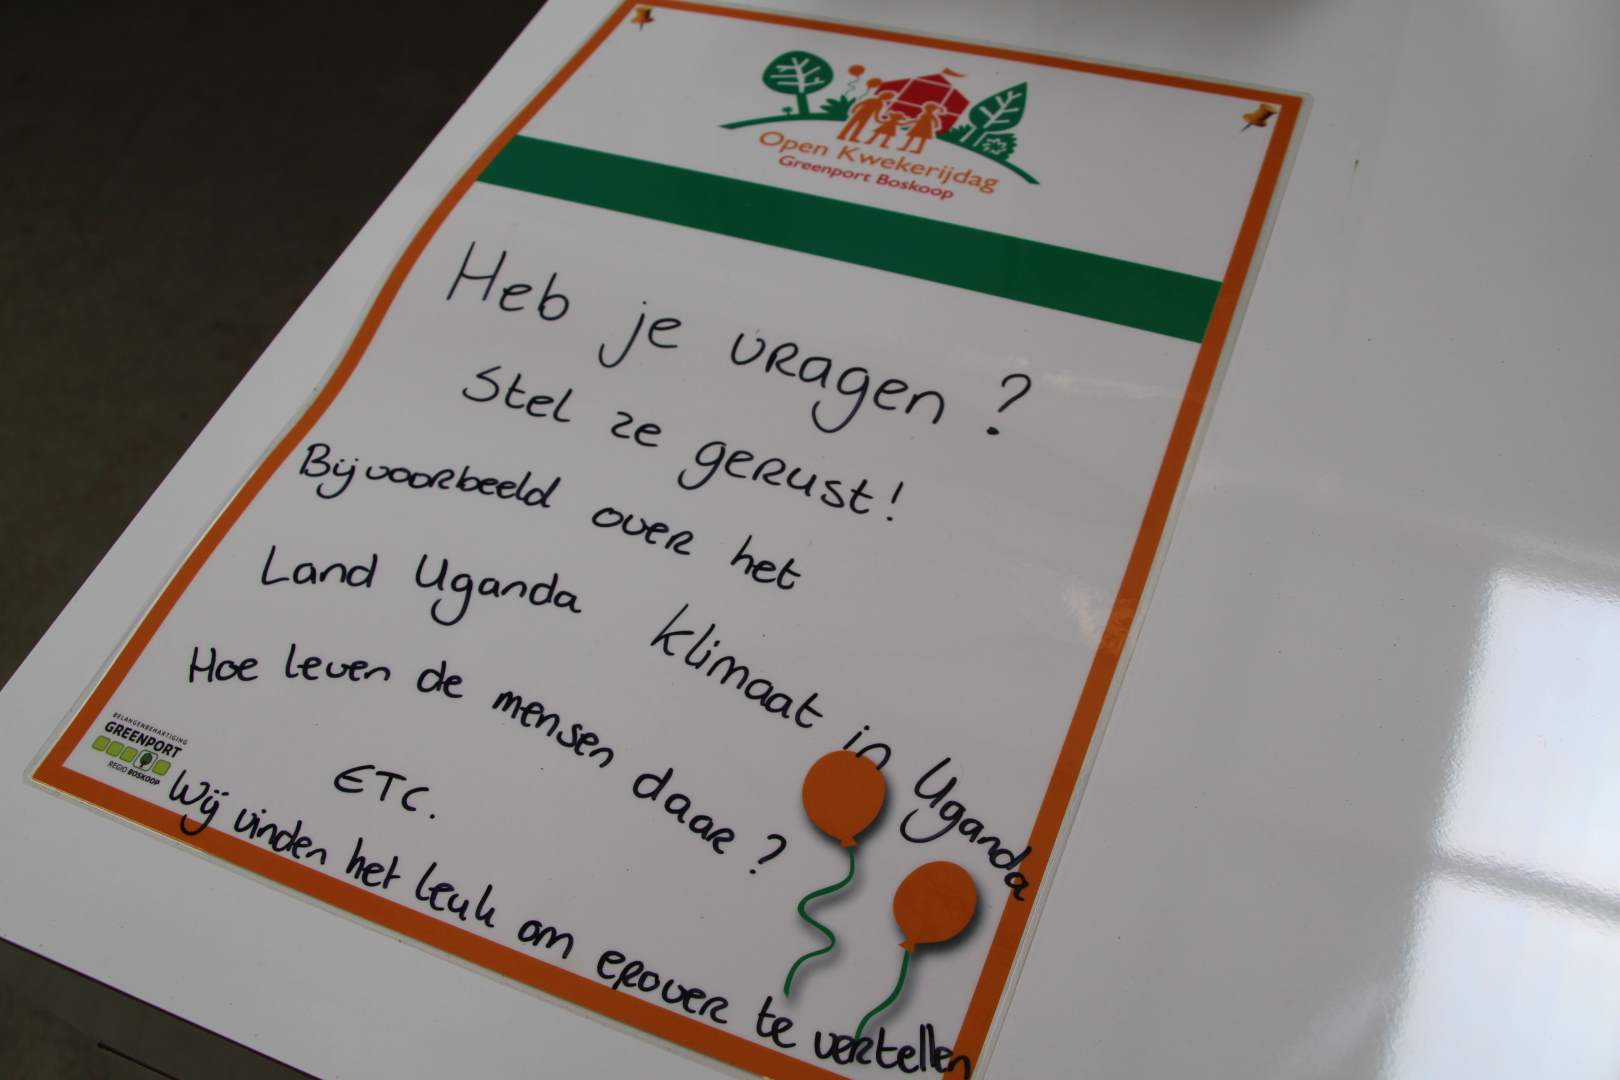 Open Kwekerijdag
Greenport Boskoop
Heb je vragen?
Stel ze gerust!
Bijvoorbeeld over het
Land Uganda Klimaat in Uganda
Hoe leven de mensen daar?
ETC.
Wij vinden het leuk om erover te vertellen
BELANGENBEHARTIGING
GREENPORT
REGIO BOSKOOP